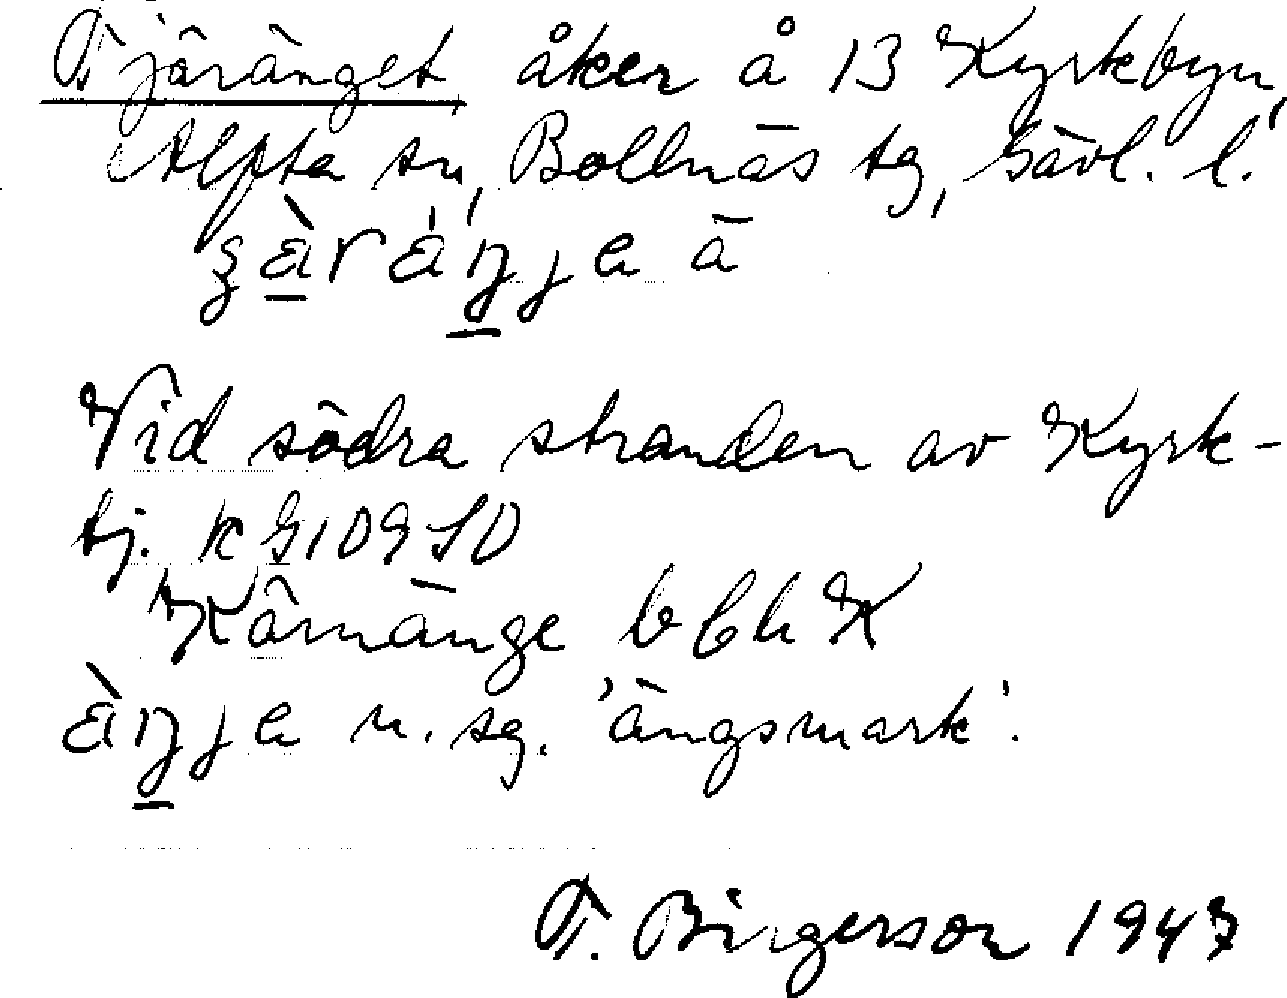 Tjäränget åker å 13 Kyrkbyn,
Alfta sn, Bollnäs tg, Gävl. l.
Vid södra stranden av Kyrk-
tj. K G109 SO
Kärnänge bbh K
äŋje n. sg. 'ängsmark'.
T. Birgerson 1947